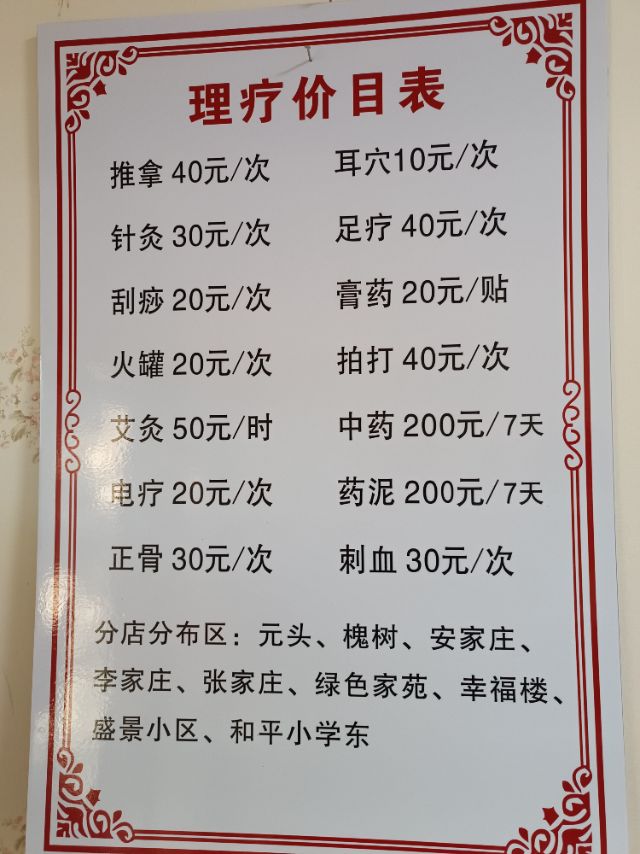 理疗价目表
推拿 40元/次 耳穴10元/次
针灸 30元/次 足疗 40元/次
刮痧 20元/次 膏药 20元/贴
火罐 20元/次 拍打 40元/次
艾灸 50元/时 中药 200元/7天
电疗 20元/次 药泥 200元/7天
正骨 30元/次 刺血 30元/次
分店分布区：元头、槐树、安家庄、
李家庄、张家庄、绿色家苑、幸福楼、
盛景小区、和平小学东